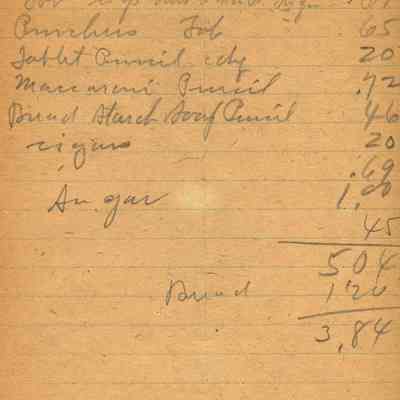 Tob
Purchus Tob 65
Tablet Pencil cdy 20
Maccaroni Pencil .42
Bread Starch Soap Pencil 46
cigars 20
.69
Sugar 1.00
45
504
Bread 120
3.84